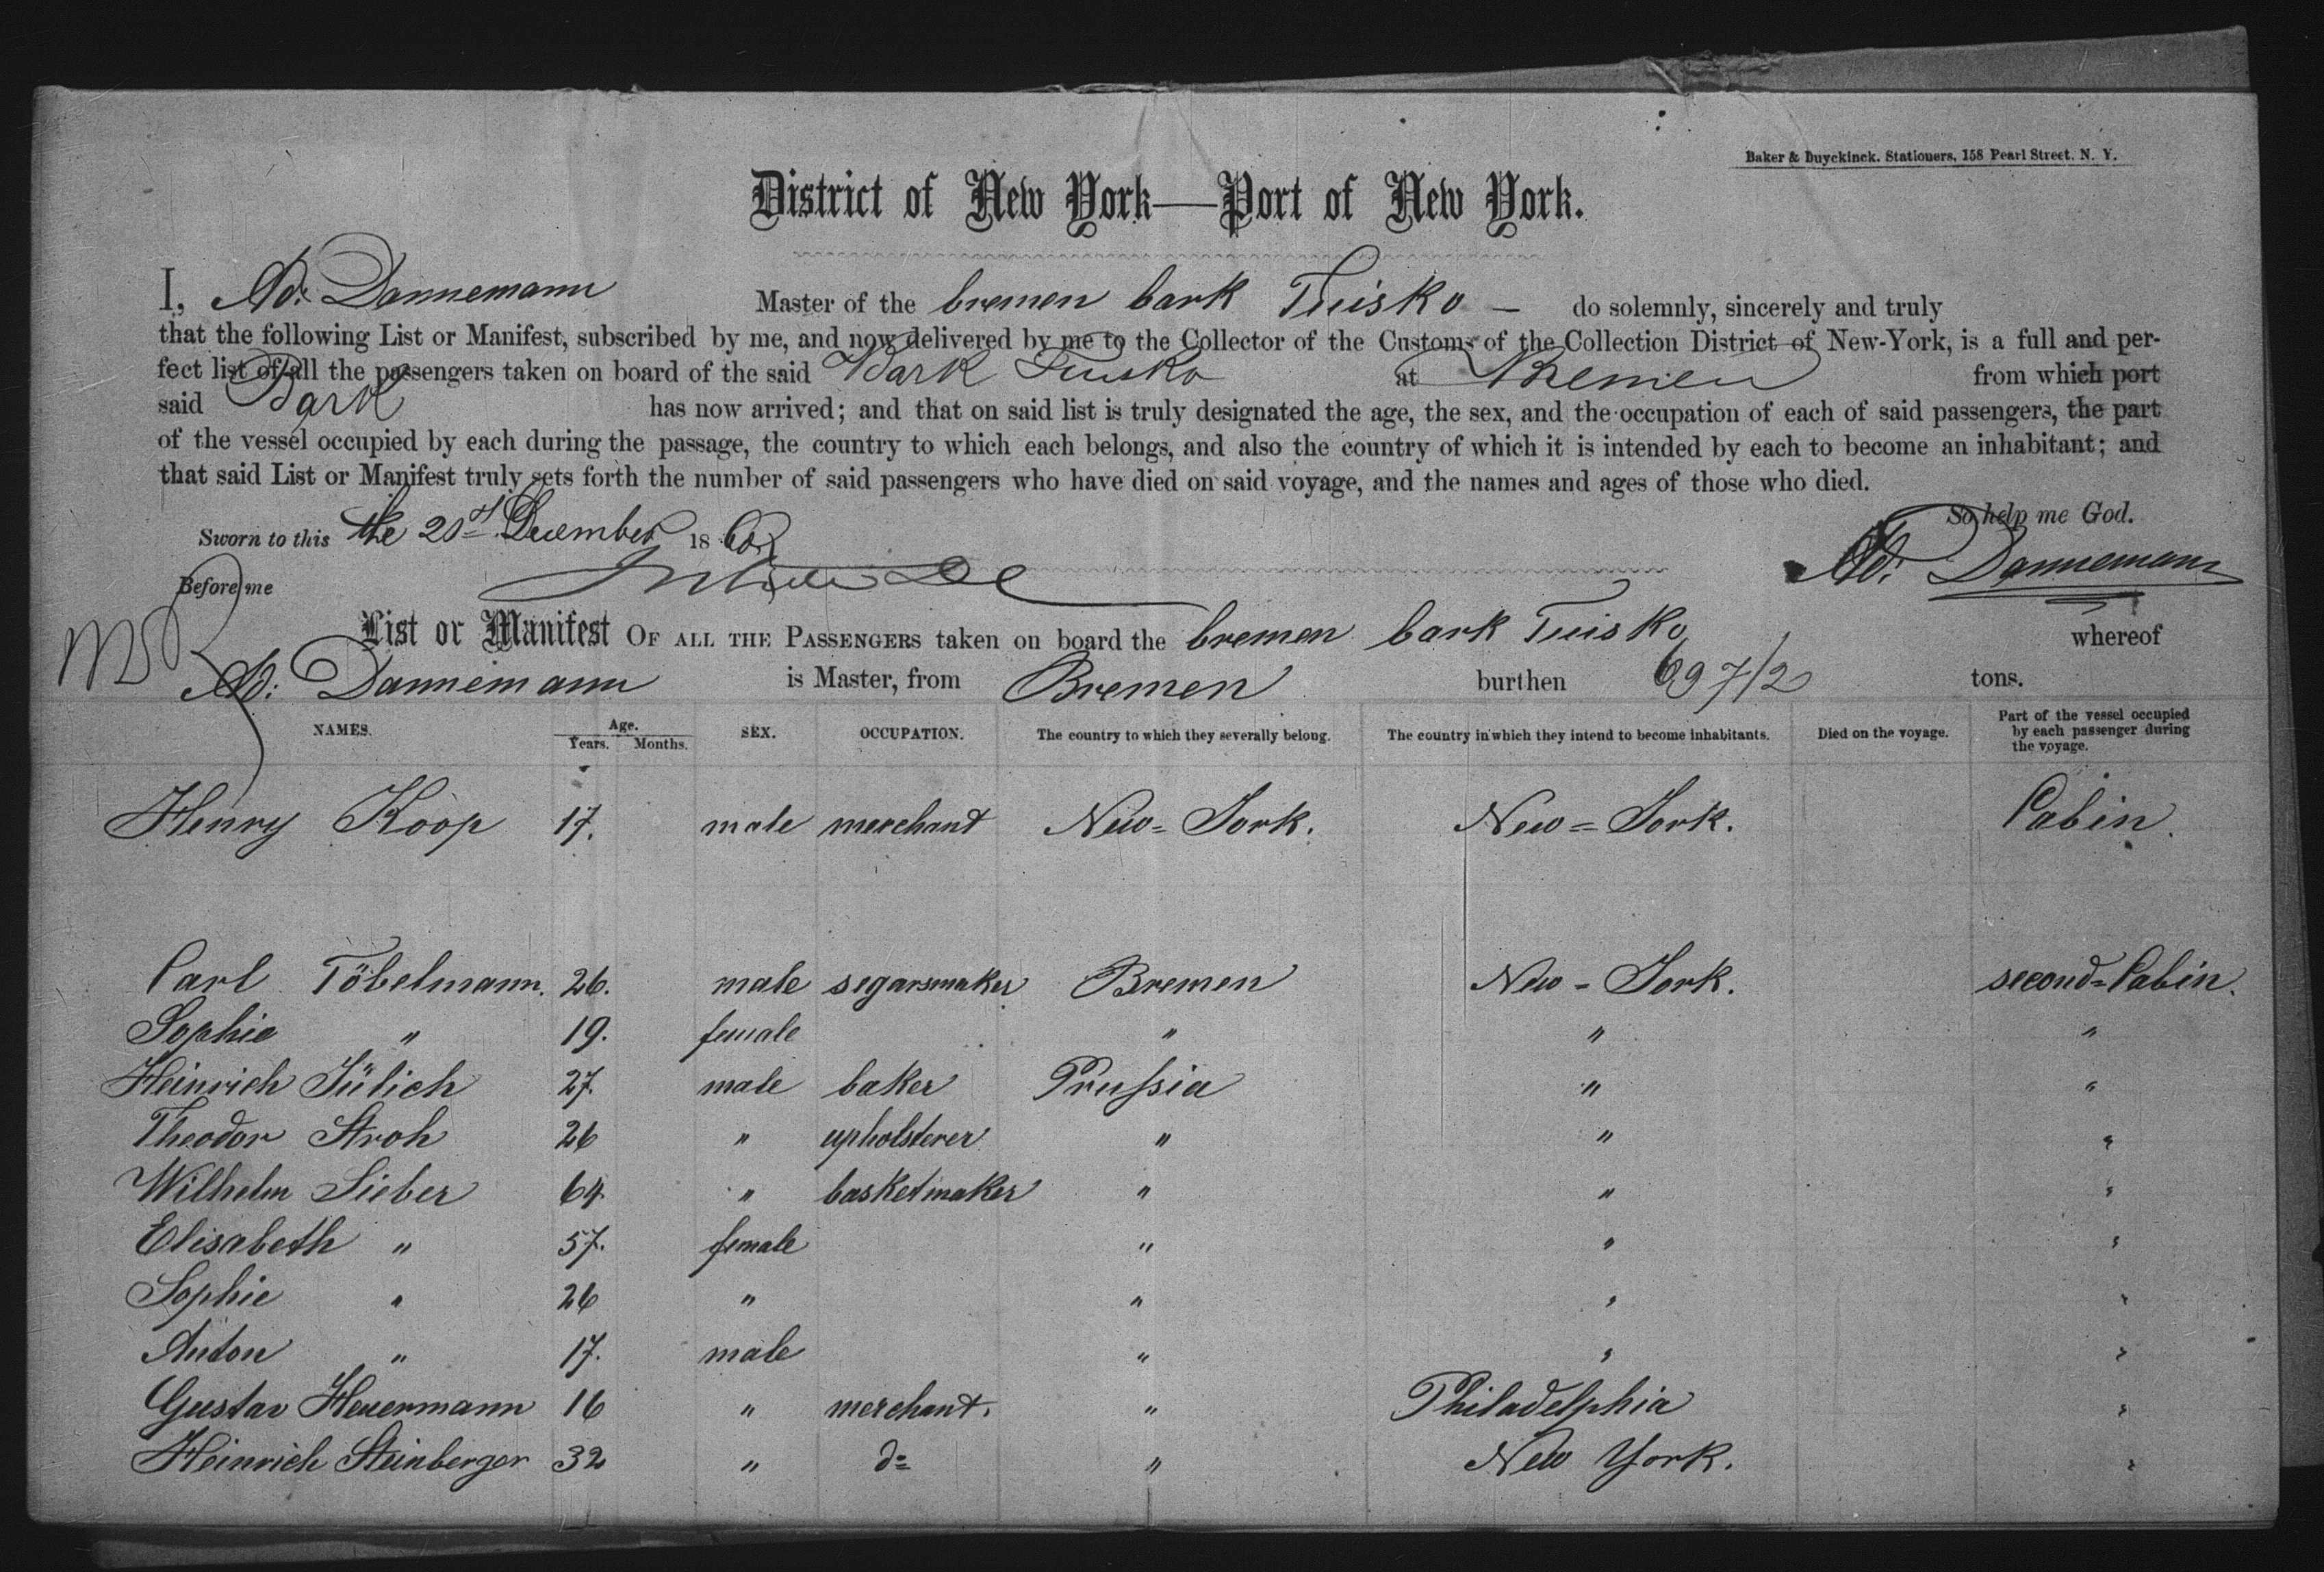 Baker & Duyckinck. Stationers, 158 Pearl Street. N. Y.
District of New York—Port of New York.
I, Ad: Dannemann Master of the bremen bark Tuisko — do solemnly, sincerely and truly
that the following List or Manifest, subscribed by me, and now delivered by me to the Collector of the Customs of the Collection District of New-York, is a full and per-
fect list of all the passengers taken on board of the said Bark Tuisko at Bremen from which port
said Bark has now arrived; and that on said list is truly designated the age, the sex, and the occupation of each of said passengers, the part
of the vessel occupied by each during the passage, the country to which each belongs, and also the country of which it is intended by each to become an inhabitant; and
that said List or Manifest truly sets forth the number of said passengers who have died on said voyage, and the names and ages of those who died.
So help me God.
Sworn to this the 21st December 18
Ad: Dannemann
Before me
List or Manifest OF ALL THE PASSENGERS taken on board the bremen bark Tuisko whereof
Ad: Dannemann is Master, from Bremen burthen 697/2 tons.
NAMES. Age. Years. Months. SEX. OCCUPATION. The country to which they severally belong. The country in which they intend to become inhabitants. Died on the voyage. Part of the vessel occupied by each passenger during the voyage.
Henry Koop 17. male merchant New=York. New=York. Cabin.
Carl Töbelmann. 26. male segarsmaker Bremen New-York. second=Cabin.
Sophie " 19. female " " "
Heinrich Jülich 27. male baker Prussia " "
Theodor Stroh 26 " upholsterer " " "
Wilhelm Sieber 64 " basketmaker " " "
Elisabeth " 57. female " " "
Sophie " 26 " " " "
Anton " 17. male " " "
Gustav Heuermann 16 " merchant. " Philadelphia "
Heinrich Steinberger 32 " do " New York. "